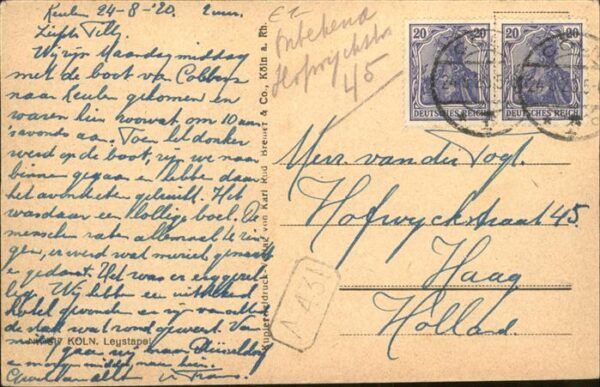 Keulen 24-8-'20. 2 uur.
Liefste Tilly.
Wij zijn Maandag middag
met de boot van Coblenz
naar Keulen gekomen en
waren hier voor wat om 10 uur
's avonds aan. Toen het donker
werd op de boot, zijn we naar
binnen gegaan en hebben daar
het avondeten gebruikt. Het
was daar een lollige boel. De
menschen zaten allemaal te zin-
gen, er werd wat muziek gemaakt
en gedanst. Het was er
Wij hebben een uitstekend
hotel gevonden en zijn vanochtend
de stad wat rond geweest. Van
middag gaan wij naar Düsseldorf
en morgen middag naar huis.
allen Frans.
KÖLN. Leystapel
Kupfertiefdruck - von Karl Rud. Bremer & Co. Köln a. Rh.
Onbekend
Hofwyckstr
45
20 20
DEUTSCHES REICH
20 20
DEUTSCHES REICH
Mevr. van der Vogt.
Hofwyckstraat 45.
Haag
Holland
A 431